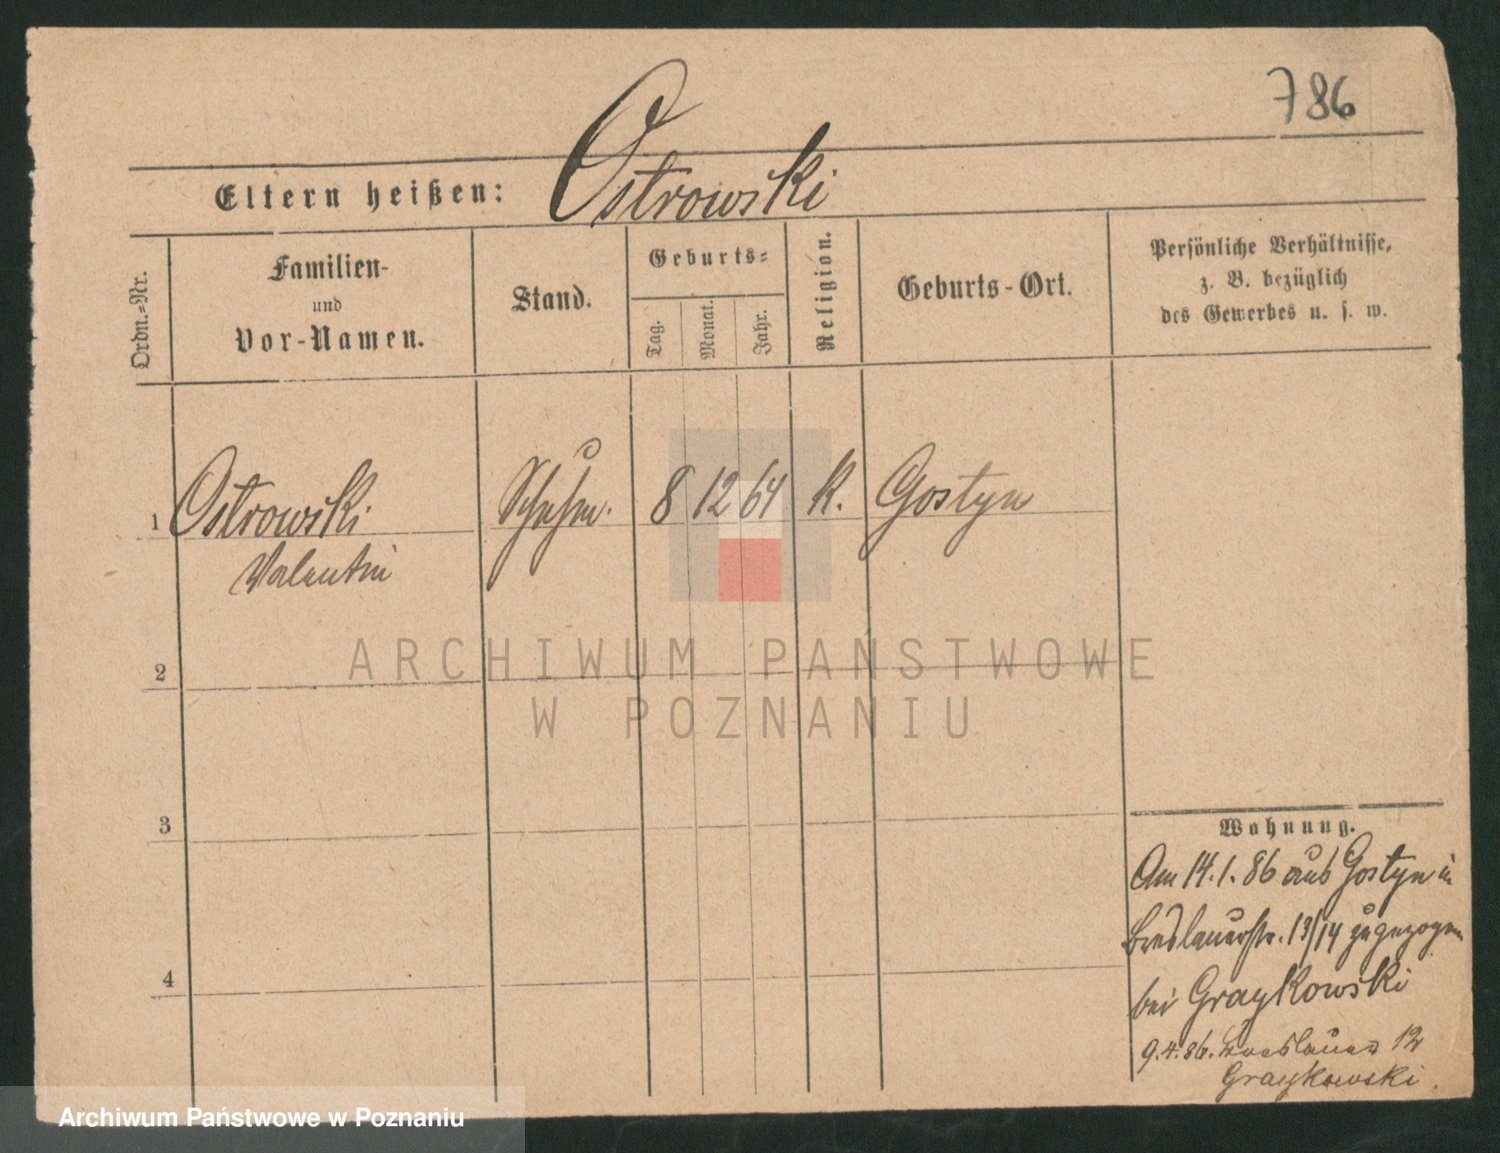 786
Eltern heißen: Ostrowski
Ordn.-Nr.
Familien-
und
Vor-Namen.
Stand.
Geburts-
Tag.
Monat.
Jahr.
Religion.
Geburts-Ort.
Persönliche Verhältnisse,
z. B. bezüglich
des Gewerbes u. s. w.
1 Ostrowski 8 12 64 k. Gostyn
Valentin
2
3
4
ARCHIWUM PAŃSTWOWE
W POZNANIU
Wohnung.
Am 14.1.86 aus Gostyn in
Breslauerstr. 13/14 zugezogen
bei Graykowski
9.4.86. Breslauer 12
Graykowski.
Archiwum Państwowe w Poznaniu